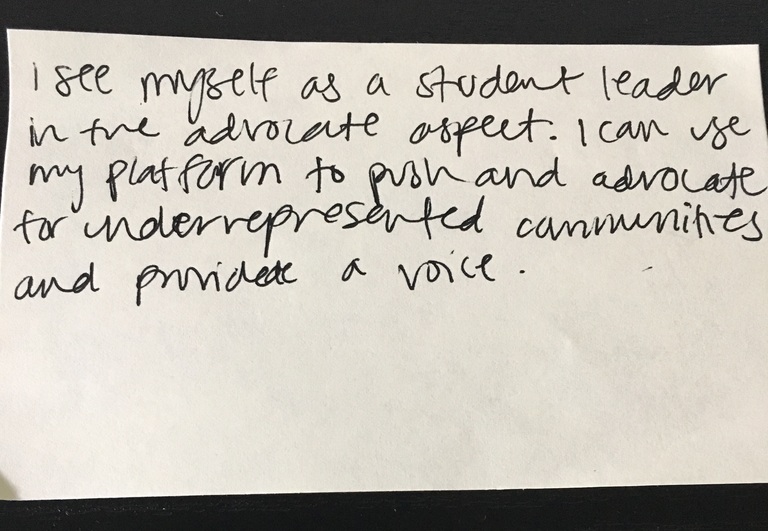 I see myself as a student leader
in the advocate aspect. I can use
my platform to push and advocate
for underrepresented communities
and provide a voice.